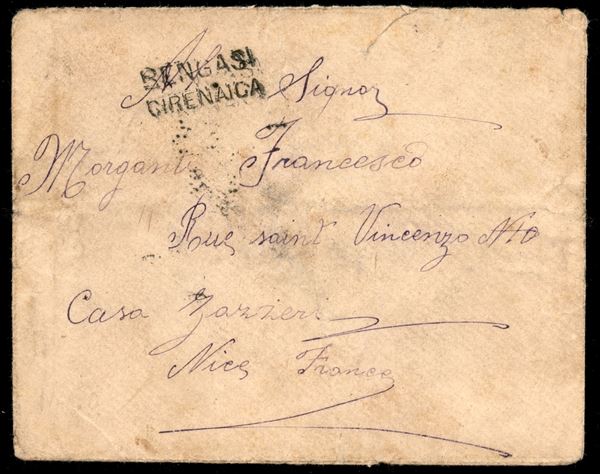 BENGASI
CIRENAICA
Al Signor
Morganti Francesco
Rue saint Vincenzo N10
Casa Zazzeri
Nice France